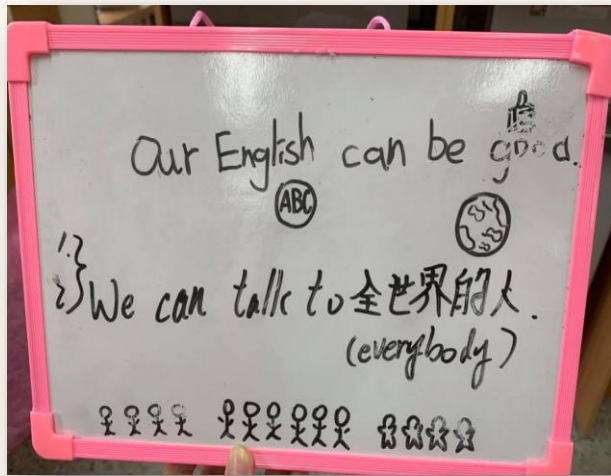 Our English can be good.
ABC
1.
2.
We can talk to 全世界的人.
(everybody)